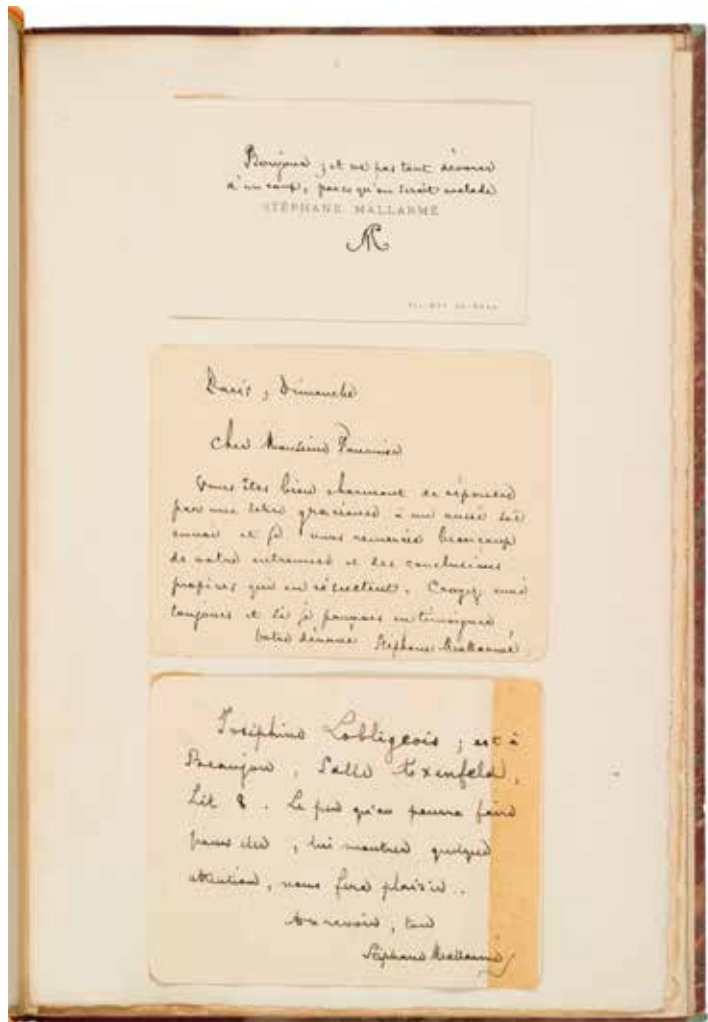 Bonjour ; et ne pas tant dévorer
d'un coup, parce qu'on serait malade
STÉPHANE MALLARMÉ
SM
Paris, Dimanche
Cher Monsieur Fournier
Vous êtes bien charmant de répondre
par une lettre gracieuse à un aussi sot
envoi et je vous remercie beaucoup
de votre entremise et des conclusions
propices qui en résultent. Croyez moi
toujours et si je pouvais en témoigner,
votre dévoué Stéphane Mallarmé
Joséphine Lobligeois ; est à
Beaujon, Salle Axenfeld,
Lit 8. Le peu qu'on pourra faire
pour elle, lui montrer quelque
attention, nous fera plaisir..
Au revoir, tard
Stéphane Mallarmé